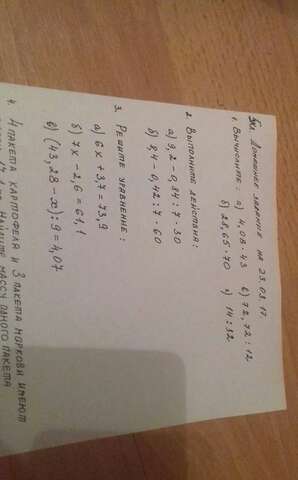 5кл. Домашнее задание на 23.03.17.
1. Вычислите: а) 4,08·43 в) 72,72:12
б) 28,65·70 г) 14:32
2. Выполните действия:
а) 9,2-0,84:7·30
б) 8,4-0,42:7·60
3. Решите уравнение:
а) 6х+3,7=73,9
б) 7х-2,6=61,1
в) (43,28-х):9=4,07
4. 4 пакета картофеля и 3 пакета моркови имеют
массу 17 Найдите массу одного пакета